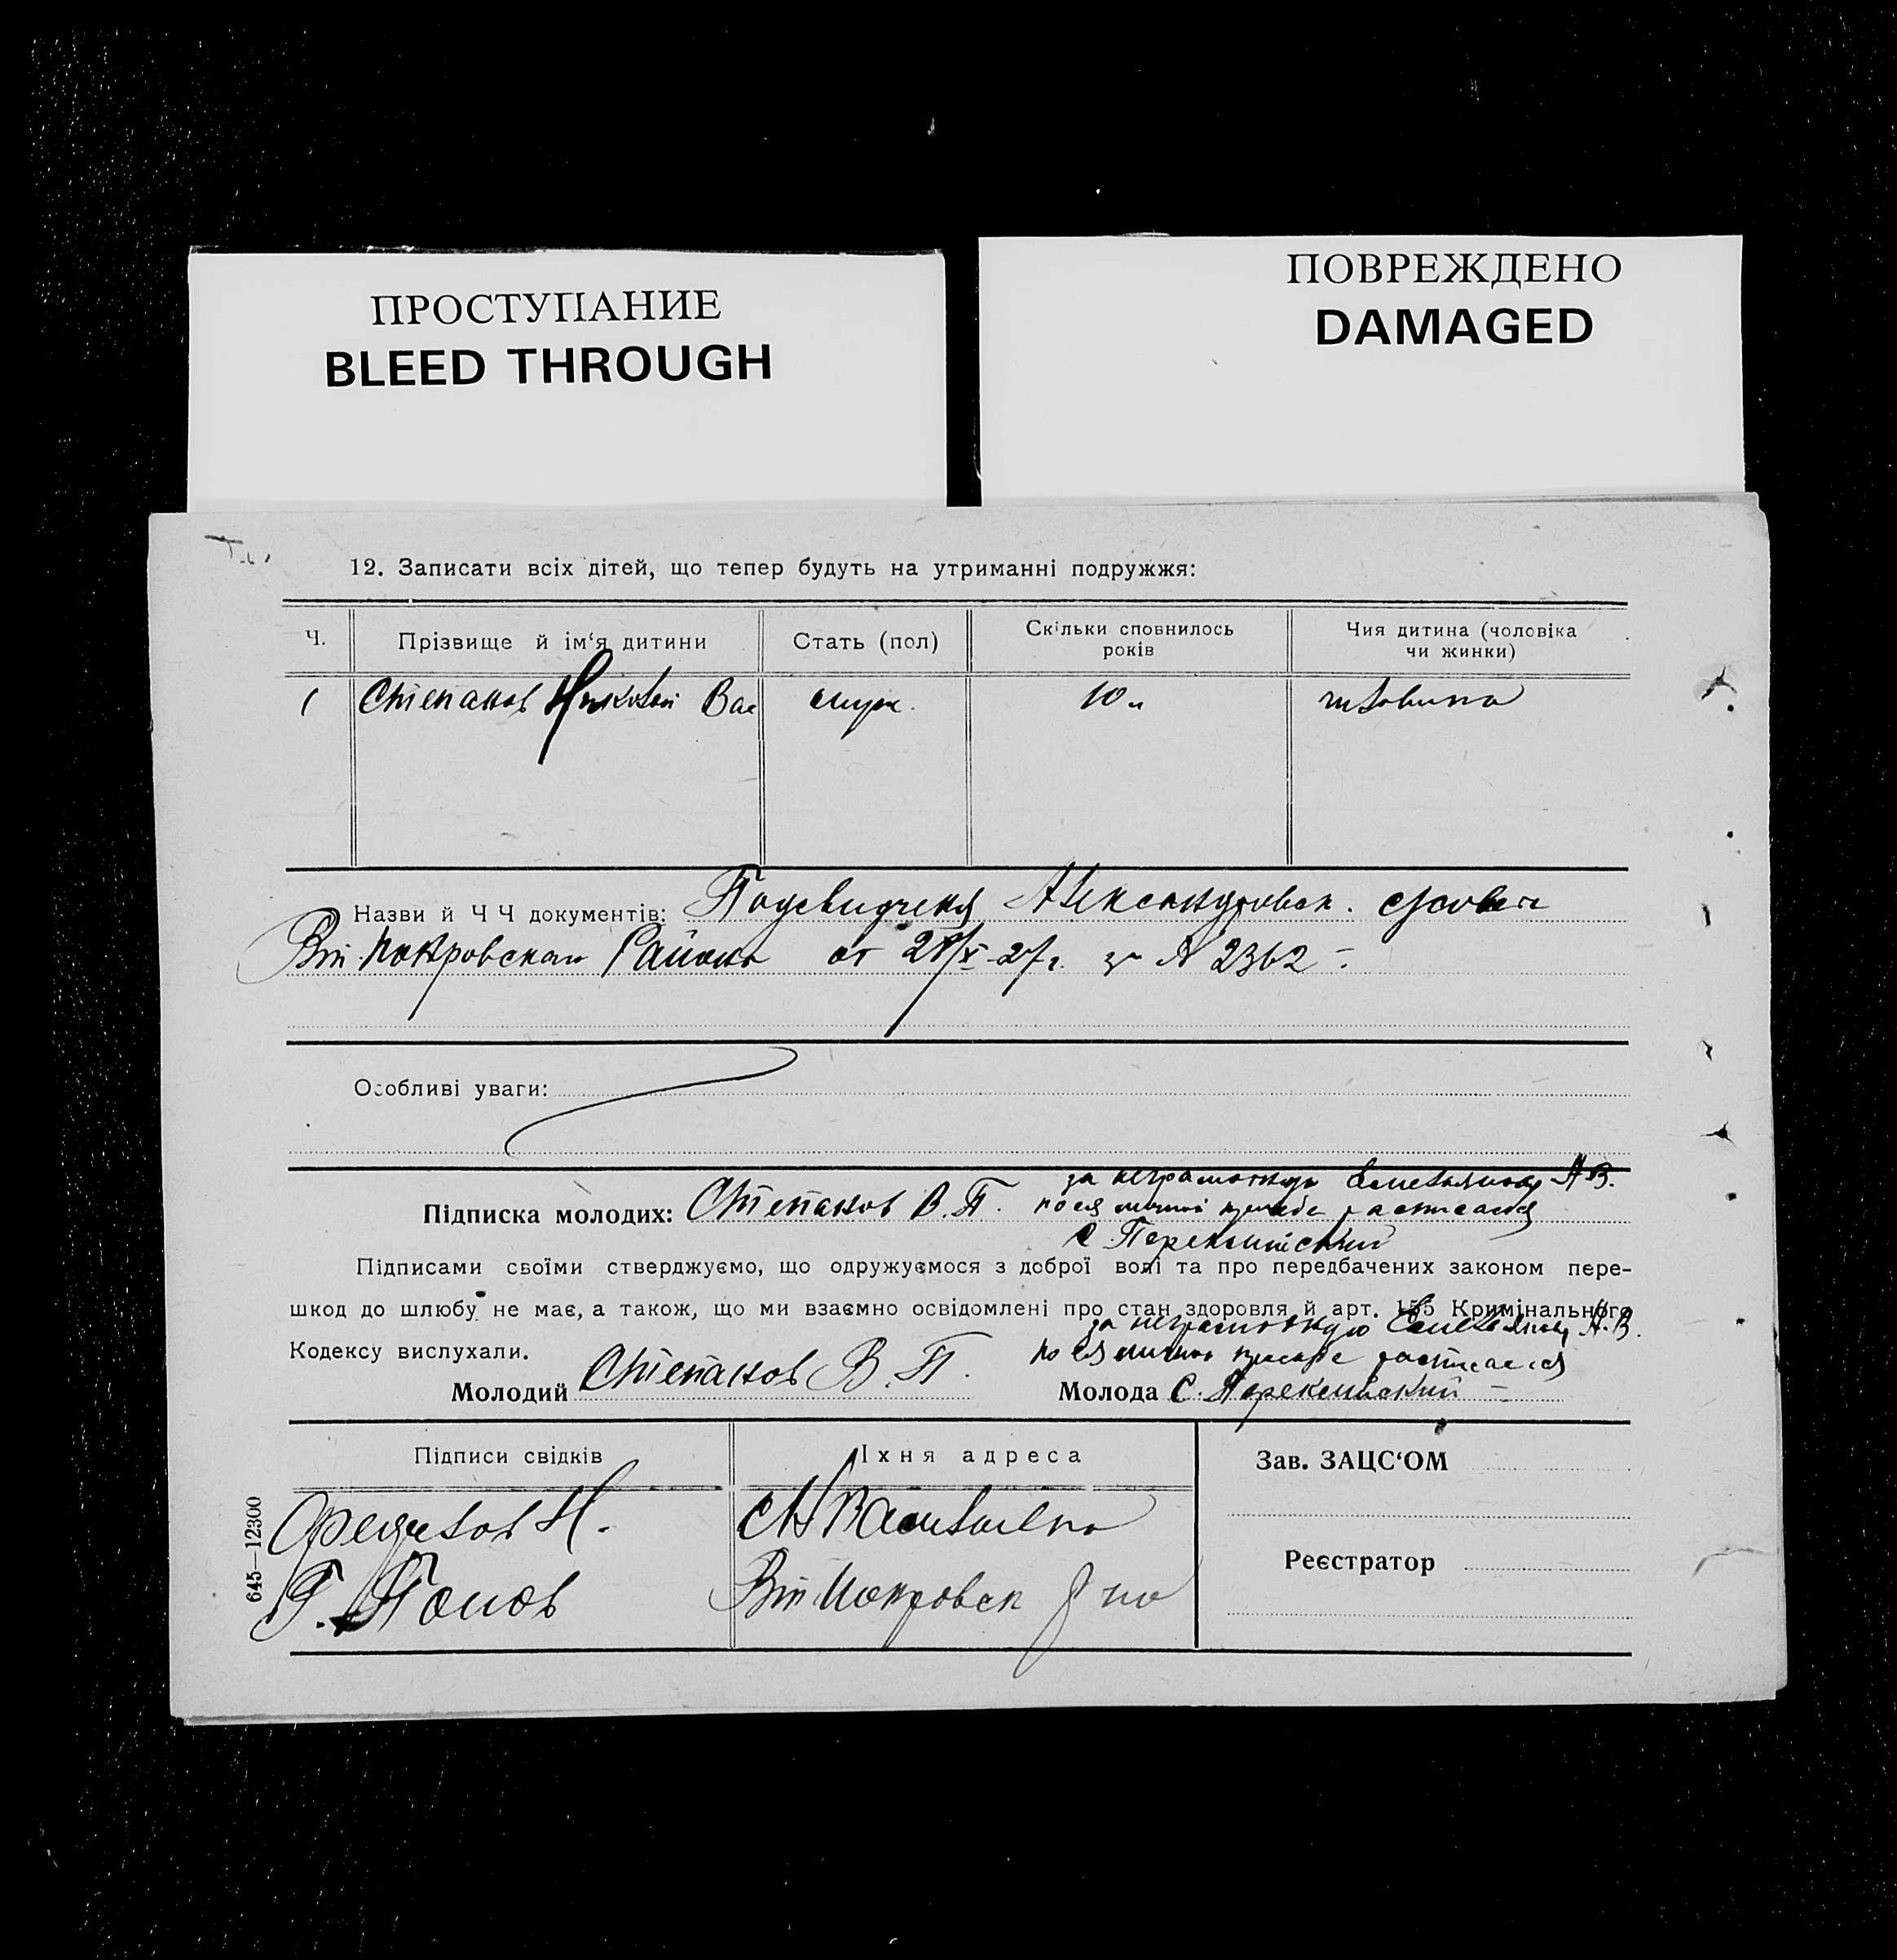 ПРОСТУПАНИЕ
BLEED THROUGH
ПОВРЕЖДЕНО
DAMAGED
12. Записати всіх дітей, що тепер будуть на утриманні подружжя:
Ч. Прізвище й ім‘я дитини Стать (пол) Скільки сповнилось років Чия дитина (чоловіка чи жинки)
1 Степанов Николай Вас муж. 10
Назви й Ч Ч документів:
Покровского Района от 28/X-27г. за № 2362
Особливі уваги:
за неграмотную А.В.
Підписка молодих: Степанов В. П. по ея личной просьбе расписался
С.
Підписами своїми стверджуємо, що одружуємося з доброї волі та про передбачених законом пере-
шкод до шлюбу не має, а також, що ми взаємно освідомлені про стан здоровля й арт. 155 Кримінального
за неграмотную А.В.
Кодексу вислухали. по ея личной просьбе расписался
Молодий Степанов В. П. Молода С.
Підписи свідків Їхня адреса Зав. ЗАЦС‘ОМ
Н.
Г. Попов
Реєстратор
645—12300